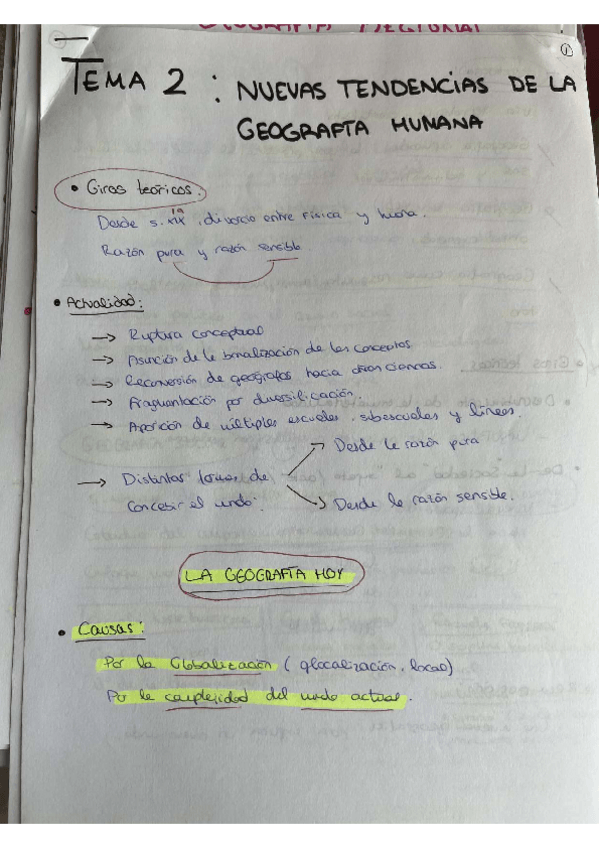 ①
TEMA 2 : NUEVAS TENDENCIAS DE LA
GEOGRAFÍA HUMANA
• Giros teóricos.
Desde s. XIX, divorcio entre Física y huma.
Razón pura y razón sensible.
• Actualidad:
→ Ruptura conceptual
→ Asunción de la banalización de los conceptos
→ Reconversión de geógrafos hacia otras ciencias.
→ Fragmentación por diversificación.
→ Aparición de múltiples escuelas, subescuelas y líneas.
→ Distintas formas de
concebir el mundo:
→ Desde la razón pura
→ Desde la razón sensible.
LA GEOGRAFÍA HOY
• Causas:
Por la Globalización (glocalización, local)
Por la complejidad del mundo actual.